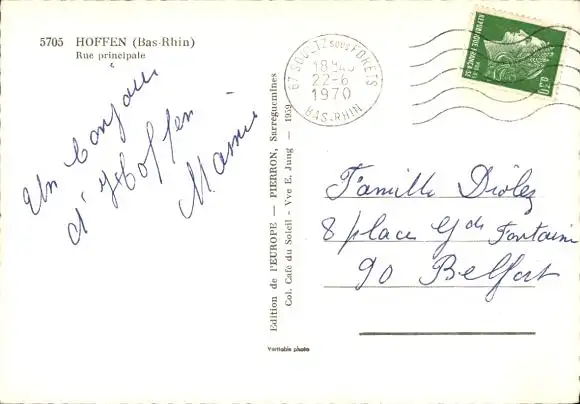 5705 HOFFEN (Bas-Rhin)
Rue principale
Un bonjour
d'Hoffen
Mamie
Edition de l'EUROPE — PIERRON, Sarreguemines
Col. Café du Soleil - Vve E. Jung - 1959
Véritable photo
67 SOULTZ SOUS FORETS
18H45
22-6
1970
BAS-RHIN
REPUBLIQUE FRANCAISE
0,30
Famille Diolez
8 place Gde Fontaine
90 Belfort